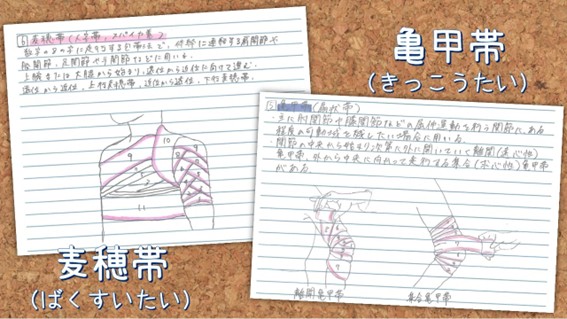 6) 麦穂帯(人字帯、スパイカ帯)
数字の8の字に走行する包帯法で、体幹に連結する肩関節や
股関節、足関節や手関節などに用いる。
上腕または大腿から始まり、遠位から近位に向けて進む。
遠位から近位、上行麦穂帯、近位から遠位、下行麦穂帯。
10
9
11
麦穂帯
(ばくすいたい)
亀甲帯
(きっこうたい)
5) 亀甲帯(扇状帯)
・主に肘関節や膝関節などの屈伸運動を行う関節に、ある
程度の可動域を残したい場合に用いる。
・関節の中央から始まり次第に外に開いていく離開(遠心性)
亀甲帯、外から中央に向かって走行する集合(求心性)亀甲帯
がある。
離開亀甲帯
集合亀甲帯